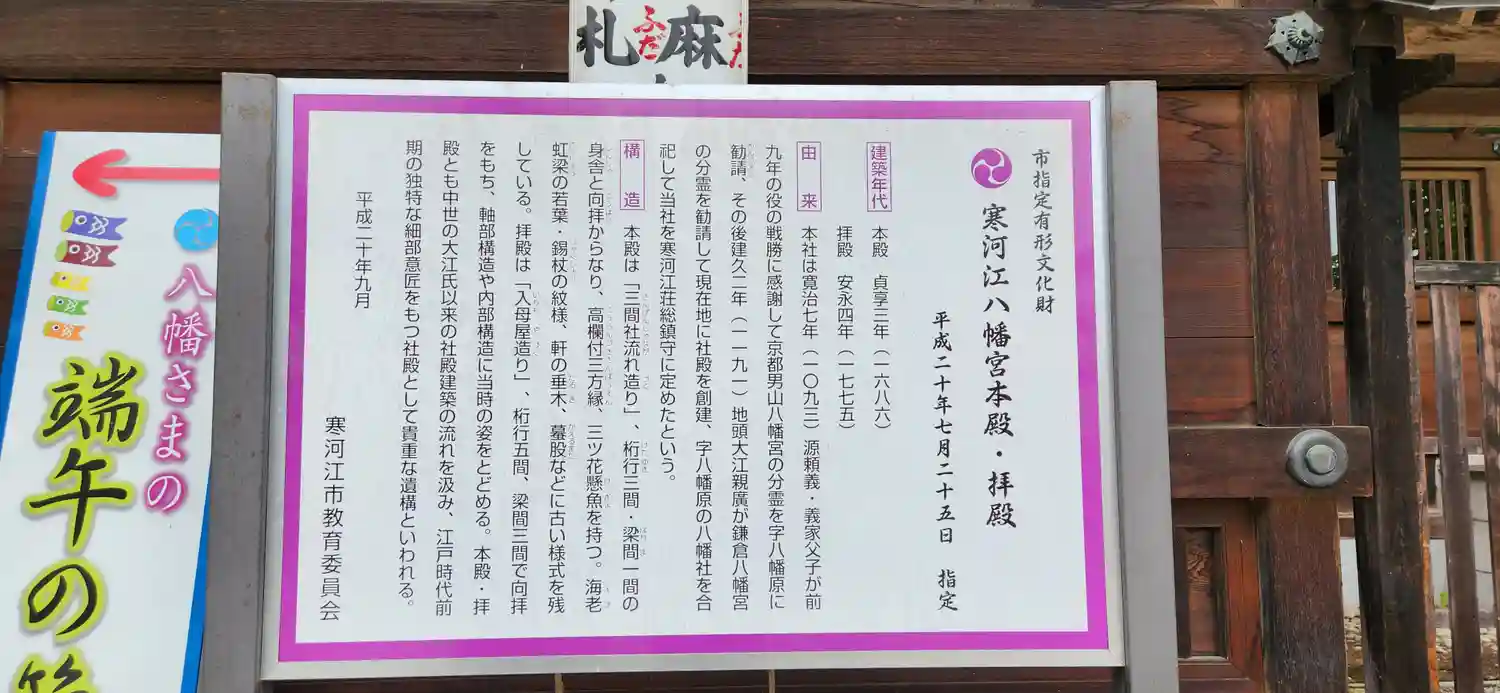 市指定有形文化財
寒河江八幡宮本殿・拝殿
平成二十年七月二十五日　指定
建築年代　本殿　貞享三年（一六八六）
拝殿　安永四年（一七七五）
由来　本社は寛治七年（一〇九三）源頼義・義家父子が前
九年の役の戦勝に感謝して京都男山八幡宮の分霊を字八幡原に
勧請、その後建久二年（一一九一）地頭大江親廣が鎌倉八幡宮
の分霊を勧請して現在地に社殿を創建、字八幡原の八幡社を合
祀して当社を寒河江荘総鎮守に定めたという。
構造　本殿は「三間社流れ造り」、桁行三間・梁間一間の
身舎と向拝からなり、高欄付三方縁、三ツ花懸魚を持つ。海老
虹梁の若葉・錫杖の紋様、軒の垂木、蟇股などに古い様式を残
している。拝殿は「入母屋造り」、桁行五間、梁間三間で向拝
をもち、軸部構造や内部構造に当時の姿をとどめる。本殿・拝
殿とも中世の大江氏以来の社殿建築の流れを汲み、江戸時代前
期の独特な細部意匠をもつ社殿として貴重な遺構といわれる。
平成二十年九月
寒河江市教育委員会
麻
札
ふだ
八幡さまの
端午の